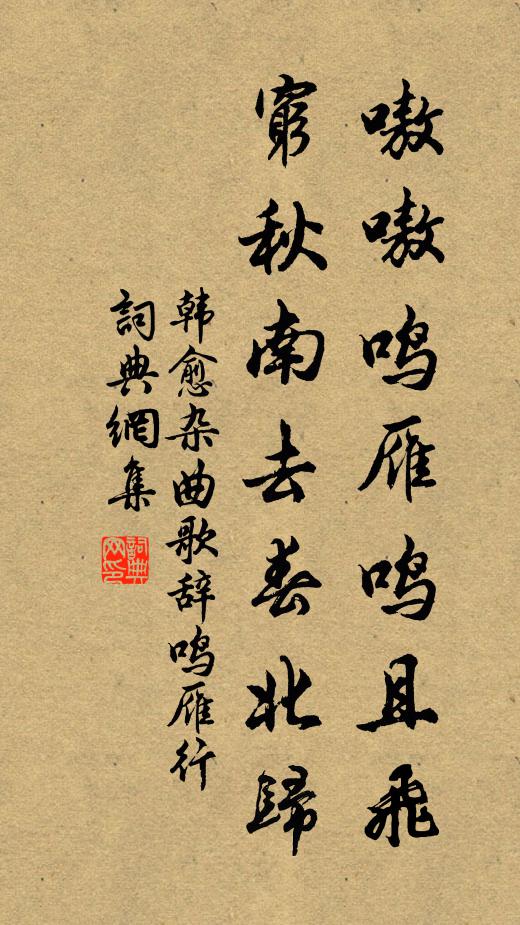 嗷嗷鸣雁鸣且飛
窮秋南去春北歸
韩愈杂曲歌辞鸣雁行
詞典網集
詞典网印